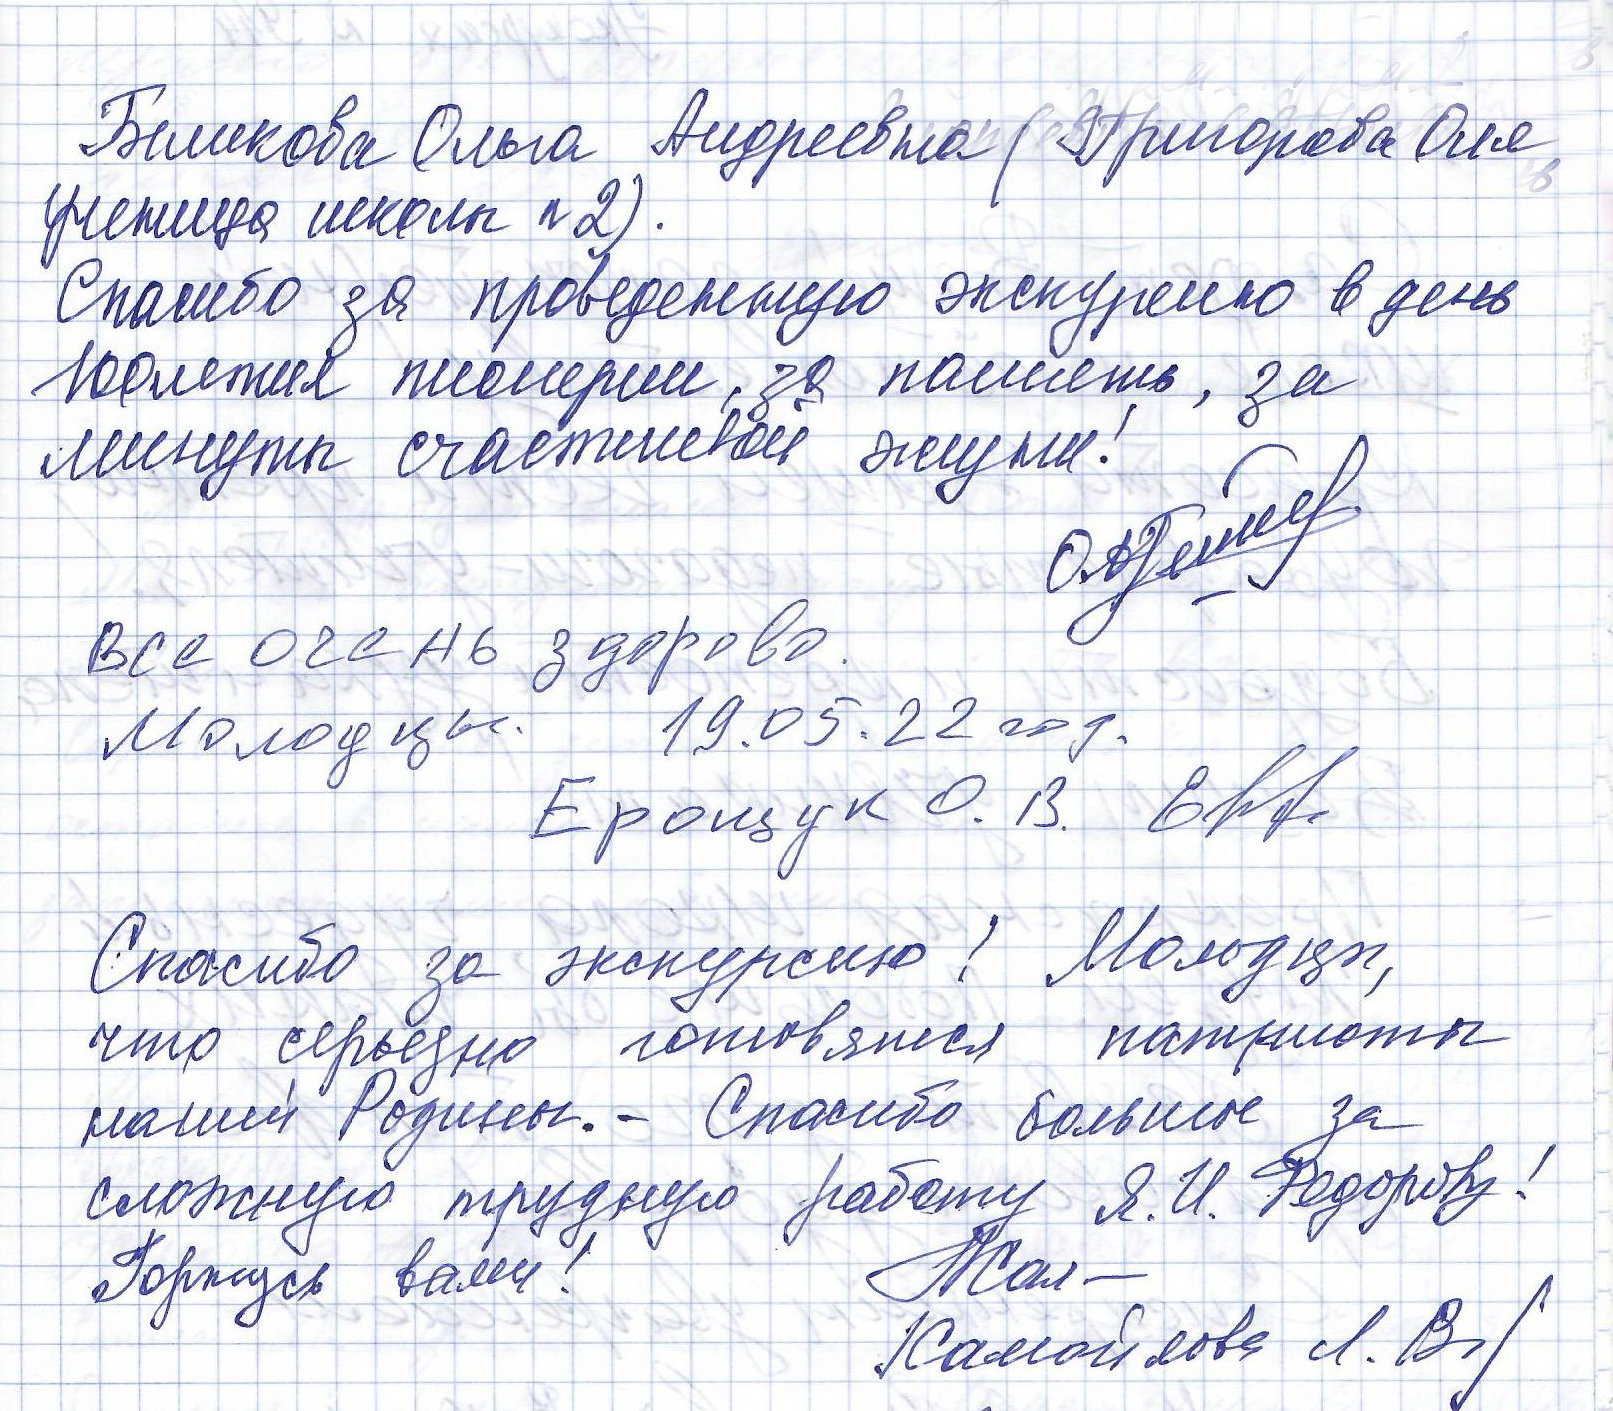 Беликова Ольга Андреевна (Григорова Оля
ученица школы №2).
Спасибо за проведенную экскурсию в день
100летия пионерии, за память, за
минуты счастливой жизни!
Все очень здорово.
Молодцы. 19.05.22 год.
Ерощук О. В.
Спасибо за экскурсию! Молодцы,
что серьезно готовятся патриоты
нашей Родины. – Спасибо большое за
сложную трудную работу Я. И. Федорову!
Горжусь вами!
Камойлова Л. В.